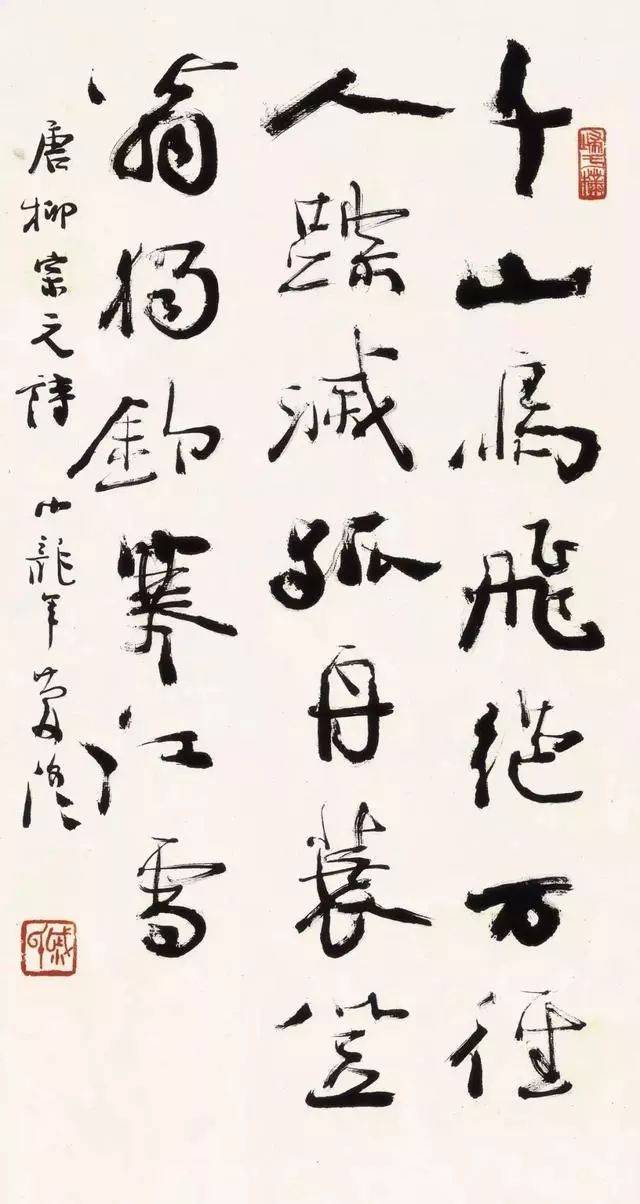 千山鳥飛絕万徑
人踪滅孤舟蓑笠
翁獨釣寒江雪
唐柳宗元詩 小龍年